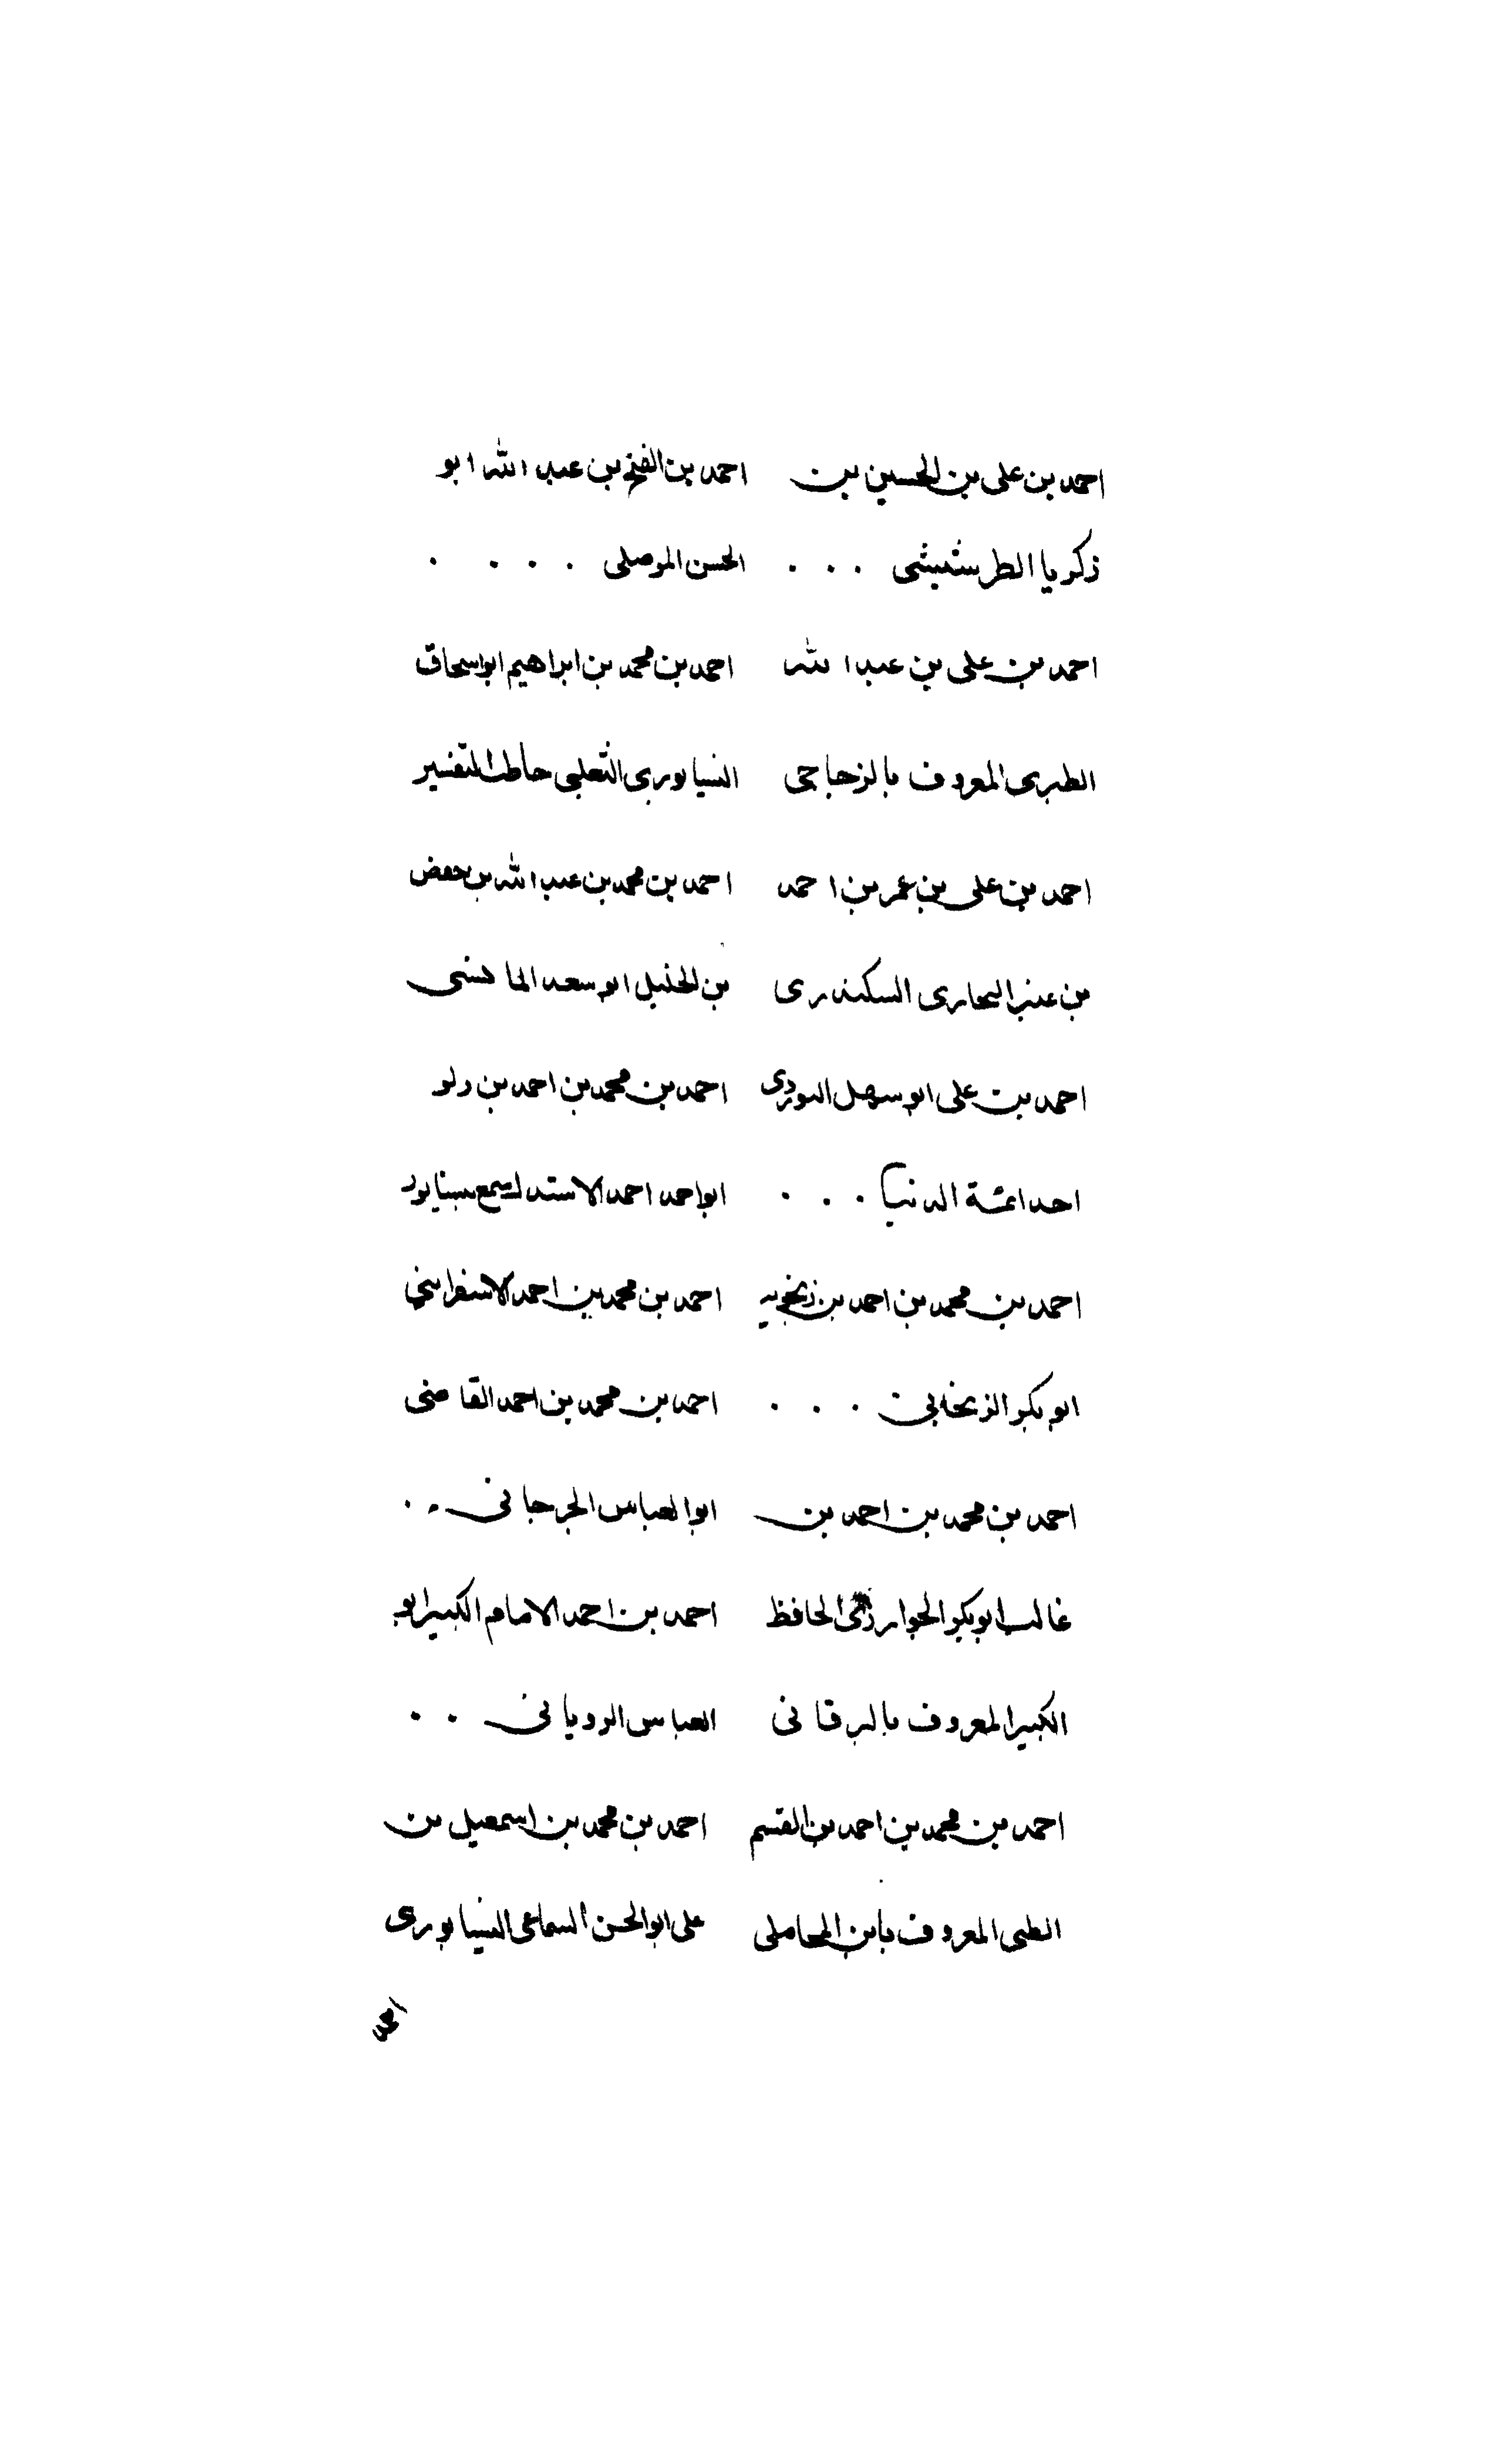 احمد بن على بن الحسين بن
زكريا الطريثيثى . . .
احمد بن على بن عبد الله
الطبرى المعروف بالزجاجى
احمد بن على بن عمر بن احمد
بن عنبر البخارى السكندرى
احمد بن على ابو سهل
احد ائمة الدنيا . . .
احمد بن محمد بن احمد بن زنجويه
ابو بكر الزنجانى . . .
احمد بن محمد بن احمد بن
غالب ابو بكر الخوارزمى الحافظ
الكبير المعروف بالبرقانى
احمد بن محمد بن احمد بن القسم
الطبى المعروف بابن المحاملى
احمد بن الفتح بن عبد الله ابو
الحسن الموصلى . . . .
احمد بن محمد بن ابراهيم ابو اسحاق
النسيابورى الثعلبى التفسير
احمد بن محمد بن عبد الله بن حفص
بن الخليل ابو سعد المالينى
احمد بن محمد بن احمد بن دلو
ابو احمد احمد
احمد بن محمد بن احمد الاسفراينى
احمد بن محمد بن احمد القاضى
ابو العباس الجرجانى . .
احمد بن احمد الامام الكبير ابو
العباس الرويانى . .
احمد بن محمد بن اسمعيل بن
على ابو الحسن السماعى النسيابورى
احمد